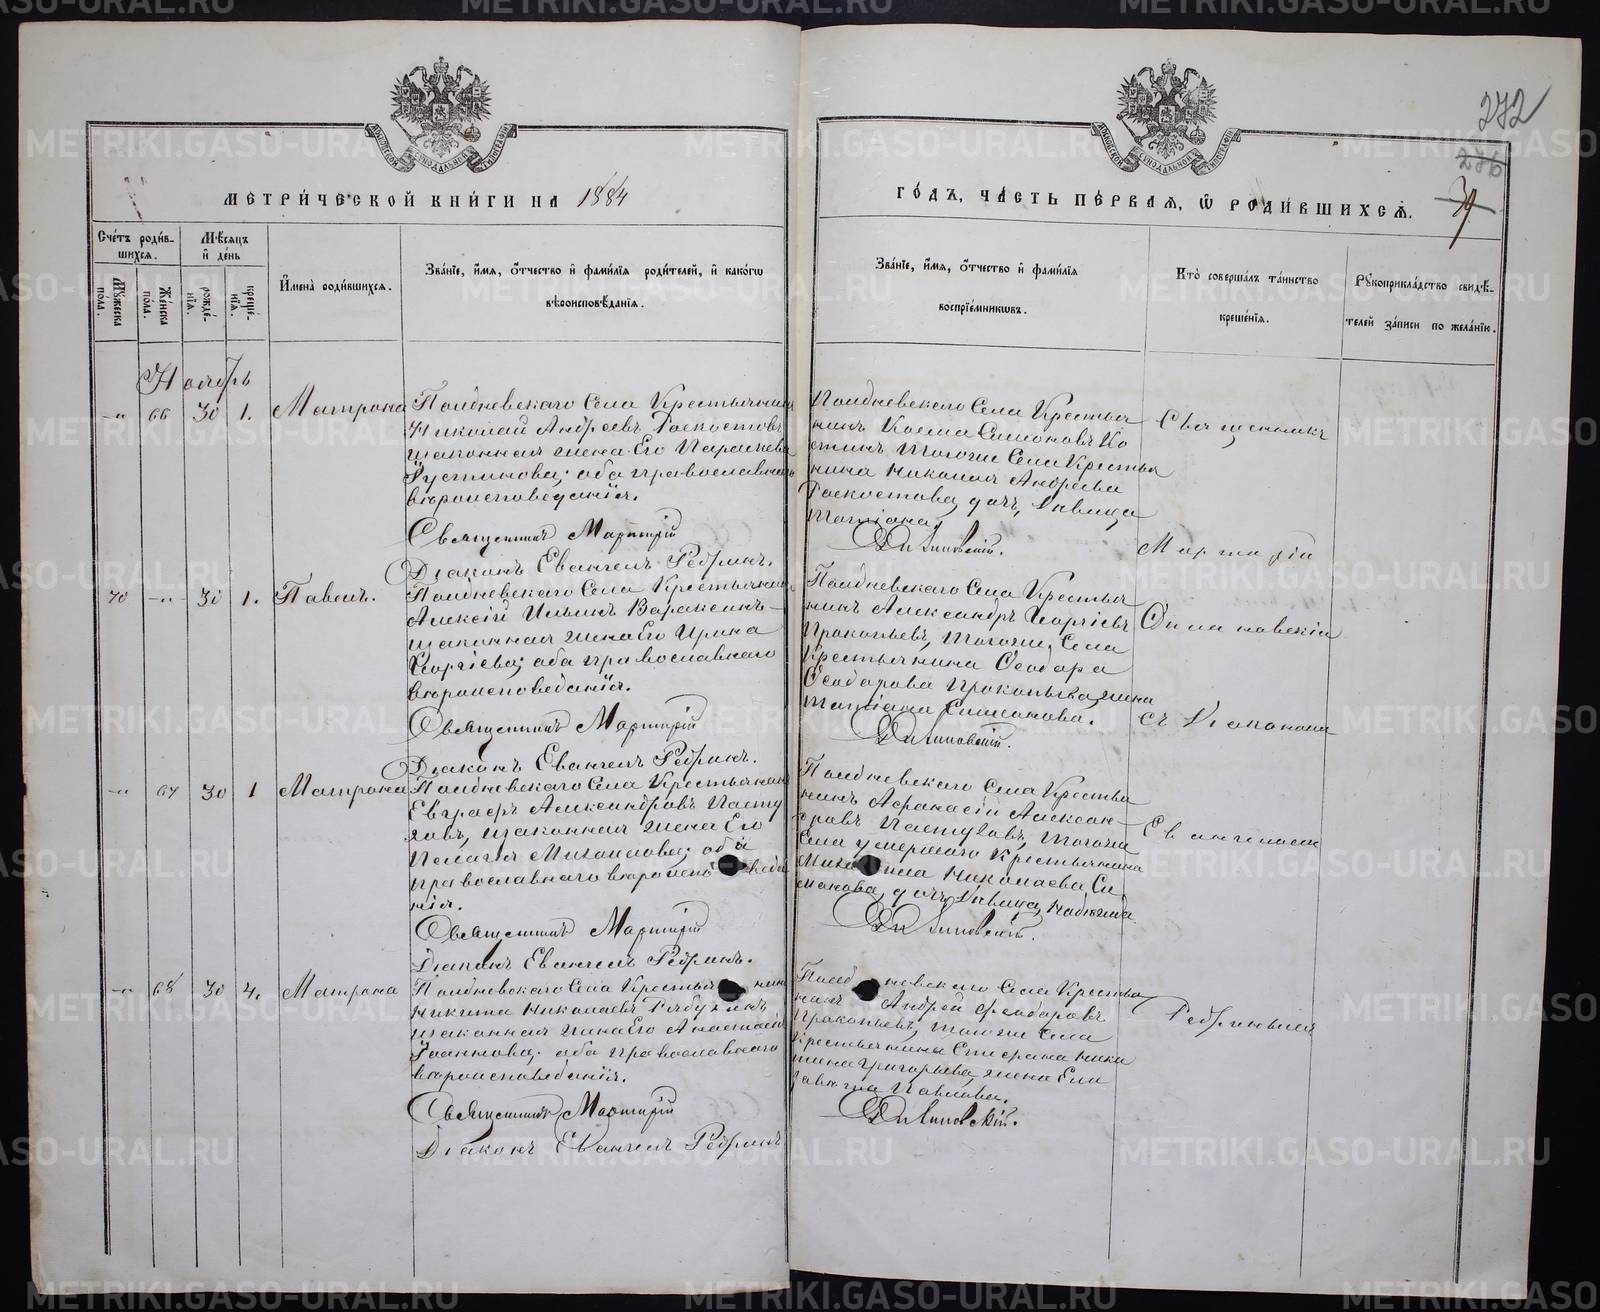 272
276
39
МЕТРИЧЕСКОЙ КНИГИ НА 1884
ГОДЪ, ЧАСТЬ ПЕРВАЯ, Ѡ РОДИВШИХСЯ.
Счетъ родившихся.
Мужеска пола.
Женска пола.
Мѣсяцъ и день
рожденія.
крещенія.
Имена родившихся.
Званіе, имя, отчество и фамилія родителей, и какогѡ
вѣроисповѣданія.
Званіе, имя, отчество и фамилія
воспріемниковъ.
Кто совершалъ таинство
крещенія.
Рукоприкладство свидѣ-
телей записи по желанію.
Ноябрь
-"- 66 30 1. Матрона
Полдневскаго Села Крестьянинъ
Николай Андреевъ
законная жена Его Параскева
Іустинова; оба православнаго
вѣроисповеданія.
Священникъ Мартирій
Діаконъ Евангелъ Ребринъ.
Полдневскаго Села Крестья
нинъ Косма Симоновъ Ко
стинъ Тогоже Села Крестья
нина Николая Андреева
дочь, дѣвица
Татіана.
Священникъ
Мартирій
70 -"- 30 1. Павелъ.
Полдневскаго Села Крестьянинъ
Алексій Ильинъ Вараксинъ
законная жена Его Ирина
Георгіева; оба православнаго
вѣроисповеданія.
Священникъ Мартирій
Діаконъ Евангелъ Ребринъ.
Полдневскаго Села Крестья
нинъ Александръ Георгіевъ
Прокопьевъ, Тогоже Села
Крестьянина Ѳеодора
Ѳеодорова Прокопьева жена
Татіана Симонова.
съ Діакономъ
-"- 67 30 1 Матрона
Полдневскаго Села Крестьянинъ
Евграфъ Александровъ Пасту
ховъ, законная жена Его
Пелагія Михаилова; оба
православнаго вѣроиспо
нія.
Священникъ Мартирій
Діаконъ Евангелъ Ребринъ.
Полдневскаго Села Крестья
нинъ Афанасій Алексан-
дровъ Пастуховъ, Тогоже
Села умершаго Крестьянина
Николаева Си
макова, дочь дѣвица Надежда
Евангеломъ
-"- 68 30 4. Матрона
Полдневскаго Села Крестьянинъ
Никита Николаевъ
законная жена Его Анастасія
Іоаннова; оба православнаго
вѣроисповеданія.
Священникъ Мартирій
Діаконъ Евангелъ Ребринъ
Полдневскаго Села Крестья
нинъ Андрей Ѳеодоровъ
Прокопьевъ, Тогоже Села
Крестьянина Стефана Ники
тина Григорьева, жена Ели
завета Павлова.
Ребринымъ
METRIKI.GASO-URAL.RU